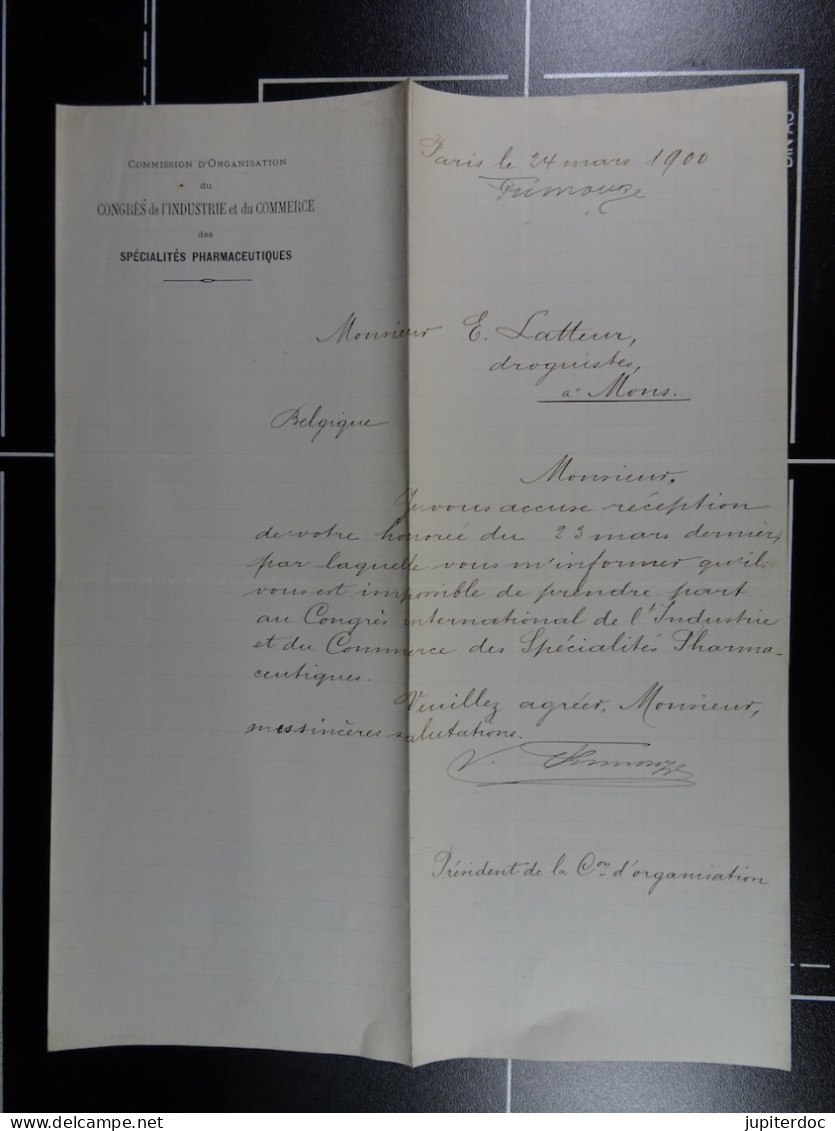 COMMISSION D'ORGANISATION
du
CONGRÈS de l'INDUSTRIE et du COMMERCE
des
SPÉCIALITÉS PHARMACEUTIQUES
Paris le 24 mars 1900
Fumouze
Monsieur E. Latteur,
droguistes,
à Mons.
Belgique
Monsieur,
Je vous accuse réception
de votre honorée du 23 mars dernier,
par laquelle vous m'informer qu'il
vous est impossible de prendre part
au Congrès international de l'Industrie
et du Commerce des Spécialités Pharma-
ceutiques.
Veuillez agréer, Monsieur,
mes sincères salutations.
V. Fumouze
Président de la Con d'organisation
DIN A5
jupiterdoc
www.delcampe.net